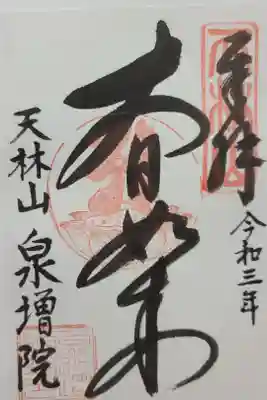 奉拝
令和三年
大日如来
天林山 泉増院